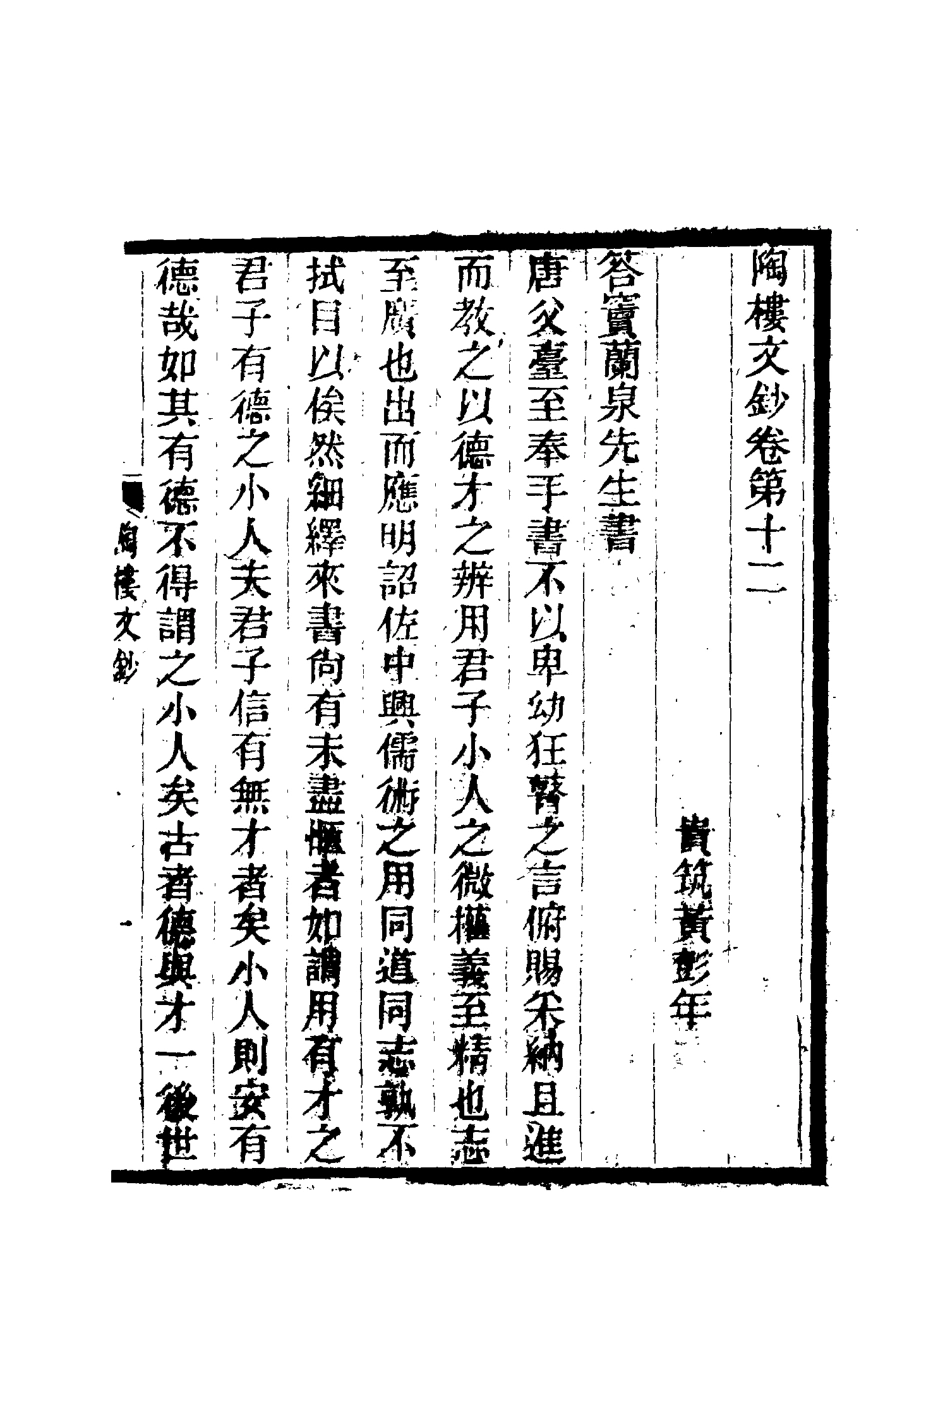 陶樓文鈔卷第十二
貴筑黃彭年
答竇蘭泉先生書
唐父臺至奉手書不以卑幼狂瞽之言俯賜采納且進
而教之以德才之辨用君子小人之微權義至精也志
至廣也出而應明詔佐中興儒術之用同道同志孰不
拭目以俟然細繹來書尚有未盡愜者如謂用有才之
君子有德之小人夫君子信有無才者矣小人則安有
德哉如其有德不得謂之小人矣古者德與才一後世
陶樓文鈔